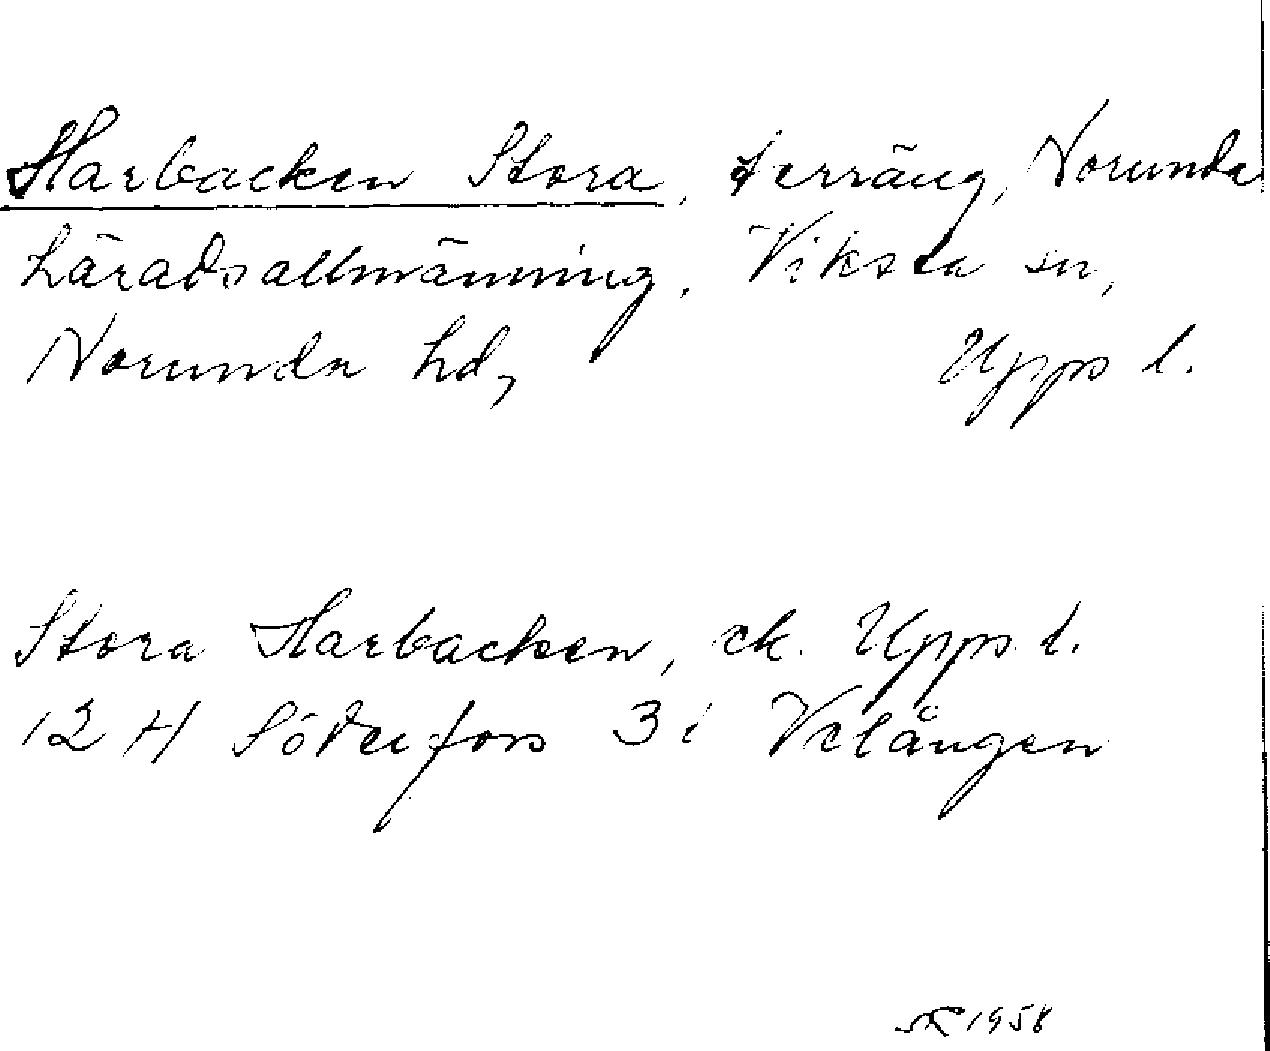 Harbacken Stora, terräng, Norunda
häradsallmänning, Viksta sn,
Norunda hd, Upps l.
Stora Harbacken, ek. Upps. l.
12 H Söderfors 3 i Velången
1958